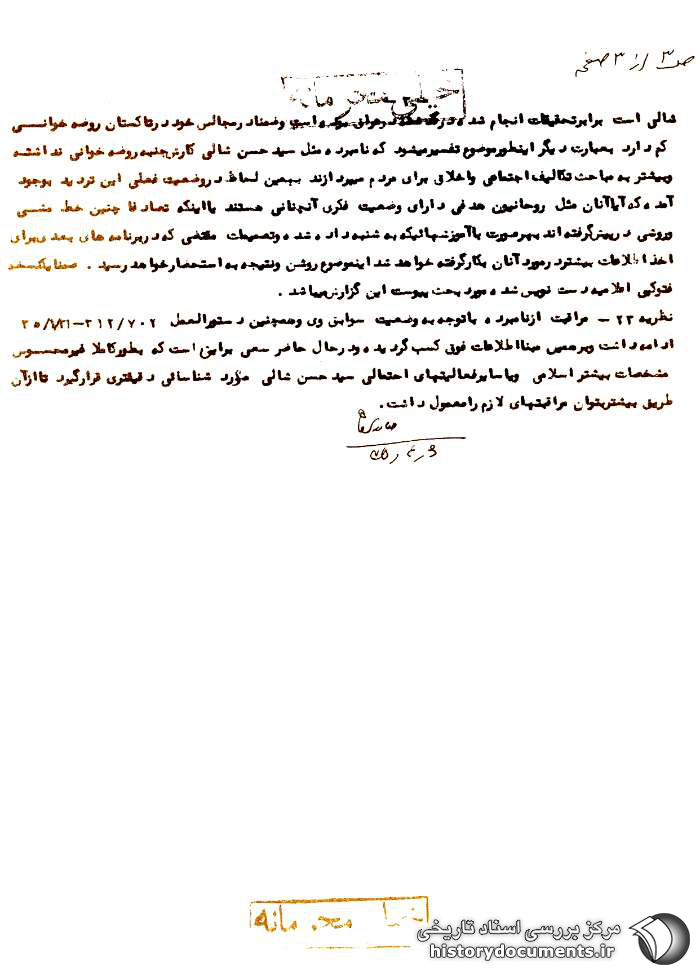 ص ۳ از ۳ صفحه
خیلی محرمانه
شالی است برابر تحقیقات انجام شده در گذشته وضمنا در مجالس خود در تاکستان روضه خوانسی
کم دارد بعبارت دیگر اینطور موضوع تفسیر میشود که نامبرده مثل سید حسن شالی کارش جنبه روضه خوانی نداشته
وبیشتر به مباحث تکالیف اجتماعی واخلاق برای مردم میپردازند بهمین لحاظ در وضعیت فعلی این تردید بوجود
آمده که آیا آنان مثل روحانیون هدفی دارای وضعیت فکری آنچنانی هستند یا اینکه تصادفا چنین خط مشی
وروشی در پیش گرفته اند بهر صورت با آموزشهائیکه به شنبه داده شده وتصمیمات مقتضی که در برنامه های بعدی برای
اخذ اطلاعات بیشتر در مورد آنان بکار گرفته خواهد شد اینموضوع روشن ونتیجه به استحضار خواهد رسید . ضمنا یکنسخه
فتوکپی اعلامیه دست نویس شده مورد بحث پیوست این گزارش میباشد .
نظریه ۲۳ – مراقبت از نامبرده با توجه به وضعیت سوابق وی وهمچنین دستورالعمل ۳۱۲/۷۰۲
ادامه داشت وبر همین مبنا اطلاعات فوق کسب گردیده ودر حال حاضر سعی براین است که بطور کاملا غیر محسوس
مشخصات بیشتر اسلامی ویا سایر فعالیتهای احتمالی سید حسن شالی مورد شناسائی دقیقتری قرار گیرد تا از آن
طریق بیشتر بتوان مراقبتهای لازم را معمول داشت .
خیلی محرمانه
مرکز بررسی اسناد تاریخی
historydocuments.ir